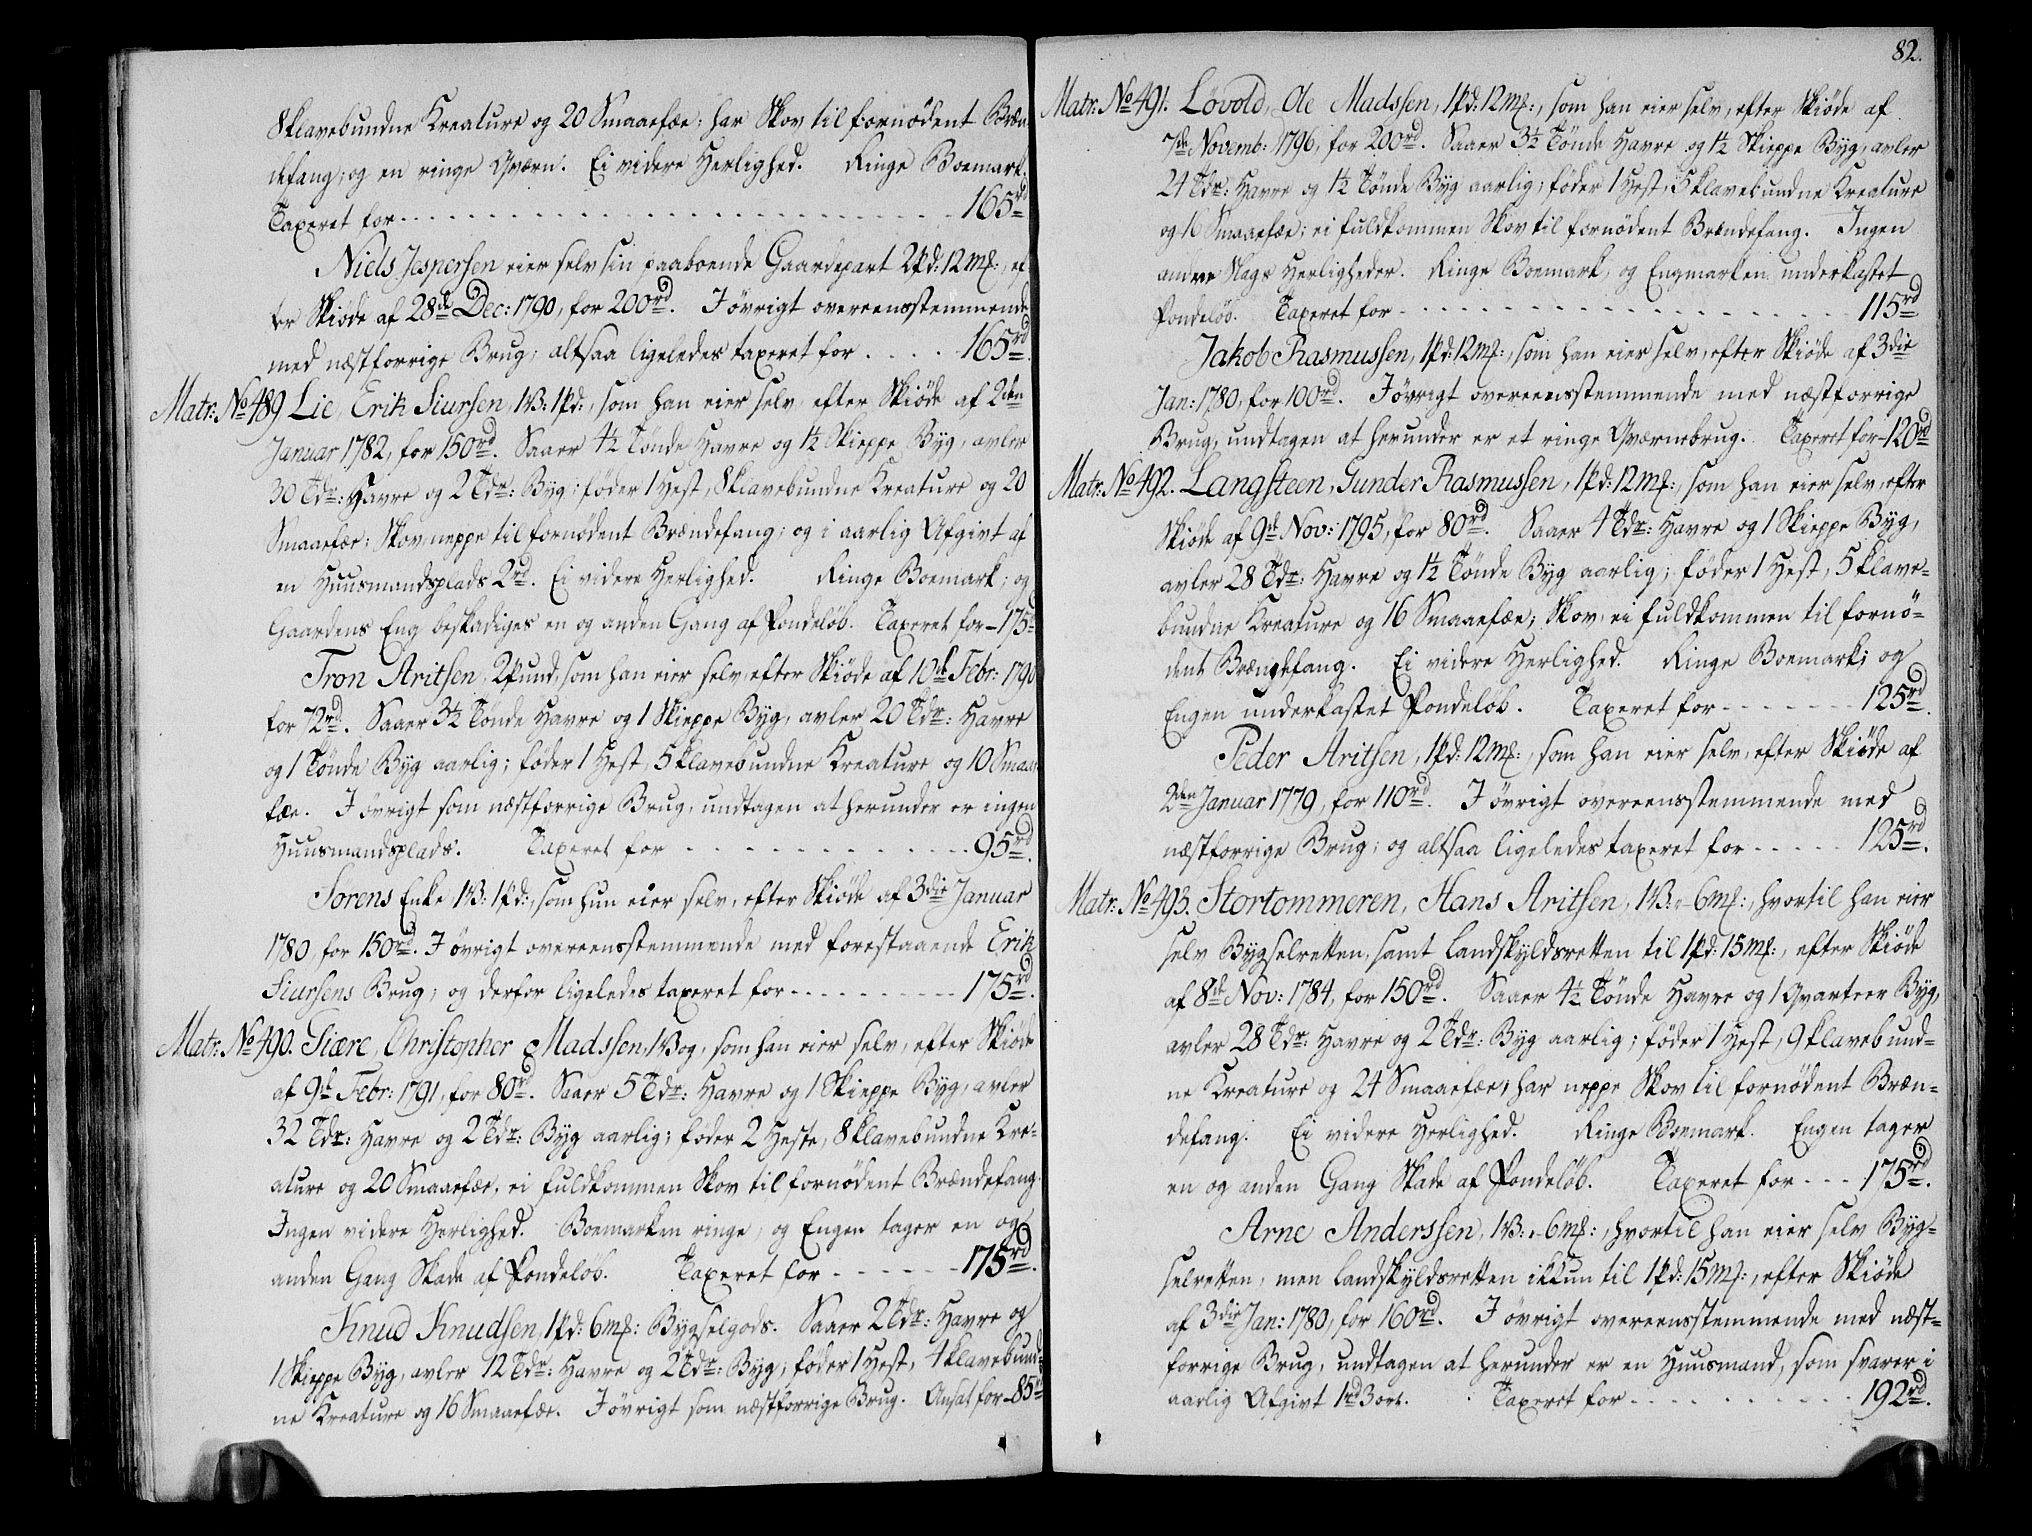 8 klavebundne Kreature og 20 Smaaefæe; har Skov til fornødent Bræn-
defang; og en ringe Qværn. Ei videre Herlighed. Ringe Boemark.
Taxeret for - - - 165 rd
Niels Jespersen eier selv sin paaboende Gaardepart 2 pd: 12 mk:, ef-
ter Skiøde af 28de Dec: 1790, for 200 rd. I øvrigt overeensstemmende
med næstforrige Brug; altsaa ligeledes taxeret for - - - 165 rd.
Matr: No 489 Lie, Erik Siursen, 1 V: 1 pd:, som han eier selv, efter Skiøde af 2den
Januar 1782, for 150 rd. Saaer 4½ Tønde Havre og 1½ Skieppe Byg, avler
30 Tdr: Havre og 2 Tdr: Byg; føder 1 Hest, 8 klavebundne Kreature og 20
Smaaefæe; Skov neppe til fornødent Brændefang; og i aarlig Afgivt af
en Huusmandsplads 2 rd. Ei videre Herlighed. Ringe Boemark; og
Gaardens Eng beskadiges en og anden Gang af Vondeløb. Taxeret for - 175
Tron Aritsen, 2 pund, som han eier selv efter Skiøde af 10de Febr: 1790
for 72 rd. Saaer 3½ Tønde Havre og 1 Skieppe Byg, avler 20 Tdr: Havre
og 1 Tønde Byg aarlig; føder 1 Hest, 5 klavebundne Kreature og 10 Smaae-
fæe. I øvrigt som næstforrige Brug, undtagen at herunder er ingen
Huusmandsplads. Taxeret for - - - 95 rd.
Sørens Enke 1 V: 1 pd:, som hun eier selv, efter Skiøde af 3die Januar
1780, for 150 rd. I øvrigt overeensstemmende med forestaaende Erik
Siursens Brug; og derfor ligeledes taxeret for - - - 175 rd.
Matr: No 490. Tiære, Christopher Madssen, 1 Vog, som han eier selv, efter Skiøde
af 9de Febr: 1791, for 80 rd. Saaer 5 Tdr: Havre og 1 Skieppe Byg, avler
32 Tdr: Havre og 2 Tdr: Byg aarlig; føder 2 Heste, 8 klavebundne Kre-
ature og 20 Smaaefæe, ei fuldkommen Skov til fornødent Brændefang.
Ingen videre Herlighed. Boemarken ringe, og Engen tager en og
anden Gang Skade af Vondeløb. Taxeret for - - - 175 rd.
Knud Knudsen, 1 pd: 6 mk: Bygselgods. Saaer 2 Tdr: Havre og
1 Skieppe Byg, avler 12 Tdr: Havre og 2 Tdr: Byg; føder 1 Hest, 4 klavebund-
ne Kreature og 16 Smaaefæe. I øvrigt som næstforrige Brug. Ansat for - 85 rd
82.
Matr: No 491. Løvold, Ole Madssen, 1 pd: 12 mk:, som han eier selv, efter Skiøde af
7de Novemb: 1796, for 200 rd. Saaer 3½ Tønde Havre og 1½ Skieppe Byg, avler
24 Tdr: Havre og 1½ Tønde Byg aarlig; føder 1 Hest, 5 klavebundne Kreature
og 16 Smaaefæe; ei fuldkommen Skov til fornødent Brændefang. Ingen
andre Slags Herligheder. Ringe Boemark, og Engmarken underkastet
Vondeløb. Taxeret for - - - 115 rd
Jakob Rasmussen, 1 pd: 12 mk:, som han eier selv, efter Skiøde af 3die
Jan: 1780, for 100 rd. I øvrigt overeensstemmende med næstforrige
Brug, undtagen at herunder er et ringe Qværnebrug. Taxeret for - 120 rd
Matr: No 492. Langsteen, Gunder Rasmussen, 1 pd: 12 mk:, som han eier selv, efter
Skiøde af 9de Nov: 1795, for 80 rd. Saaer 4 Tdr: Havre og 1 Skieppe Byg,
avler 28 Tdr: Havre og 1½ Tønde Byg aarlig; føder 1 Hest, 5 klave-
bundne Kreature og 16 Smaaefæe; Skov, ei fuldkommen til fornø-
dent Brændefang. Ei videre Herlighed. Ringe Boemark; og
Engen underkastet Vondeløb. Taxeret for - - - 125 rd.
Peder Aritsen, 1 pd: 12 mk:, som han eier selv, efter Skiøde af
2den Januar 1779, for 110 rd. I øvrigt overeensstemmende med
næstforrige Brug; og altsaa ligeledes taxeret for - - - 125 rd.
Matr: No 493. Stortommeren, Hans Aritsen, 1 V: - 6 mk:, hvortil han eier
selv Bygselretten, samt Landskyldsretten til 1 pd: 15 mk:, efter Skiøde
af 8de Nov: 1784, for 150 rd. Saaer 4½ Tønde Havre og 1 Qvarteer Byg,
avler 28 Tdr: Havre og 2 Tdr: Byg aarlig; føder 1 Hest, 9 klavebund-
ne Kreature og 24 Smaaefæe; har neppe Skov til fornødent Bræn-
defang. Ei videre Herlighed. Ringe Boemark. Engen tager
en og anden Gang Skade af Vondeløb. Taxeret for - - - 175 rd.
Arne Anderssen, 1 V: - 6 mk:, hvortil han eier selv Byg-
selretten, men Landskyldsretten ikkun til 1 pd: 15 mk:, efter Skiøde
af 3die Jan: 1780, for 160 rd. I øvrigt overeensstemmende med næst-
forrige Brug, undtagen at herunder er en Huusmand, som svarer i
aarlig Afgivt 1 rd 3 ort. Taxeret for - - - 192 rd.